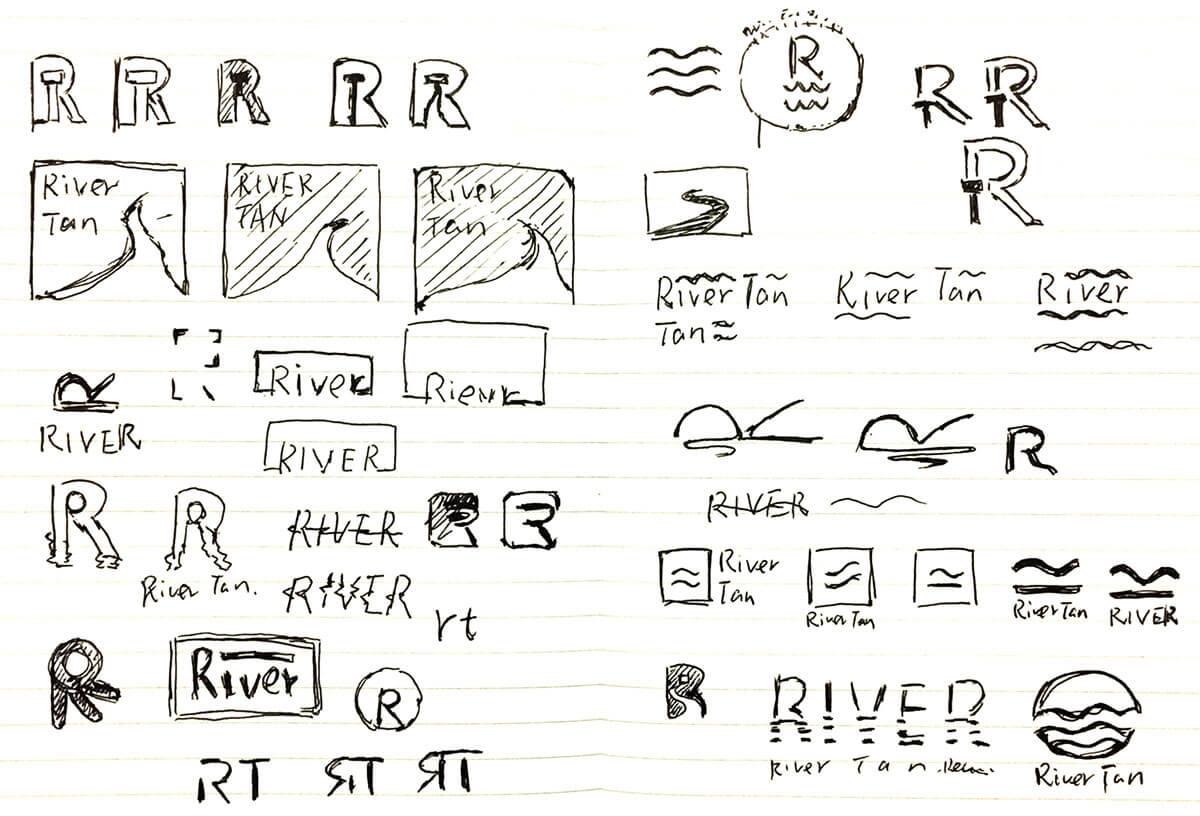 R R R R R
River
Tan
RIVER
TAN
River
Tan
River
RIVER
RIVER
R R
River Tan.
RIVER
RIVER
R R
rt
R
River
R
RT
R
R R
R
River Tan
Tan
River Tan
River
R
RIVER
River
Tan
River Tan
River Tan
RIVER
R
RIVER
River Tan
River Tan